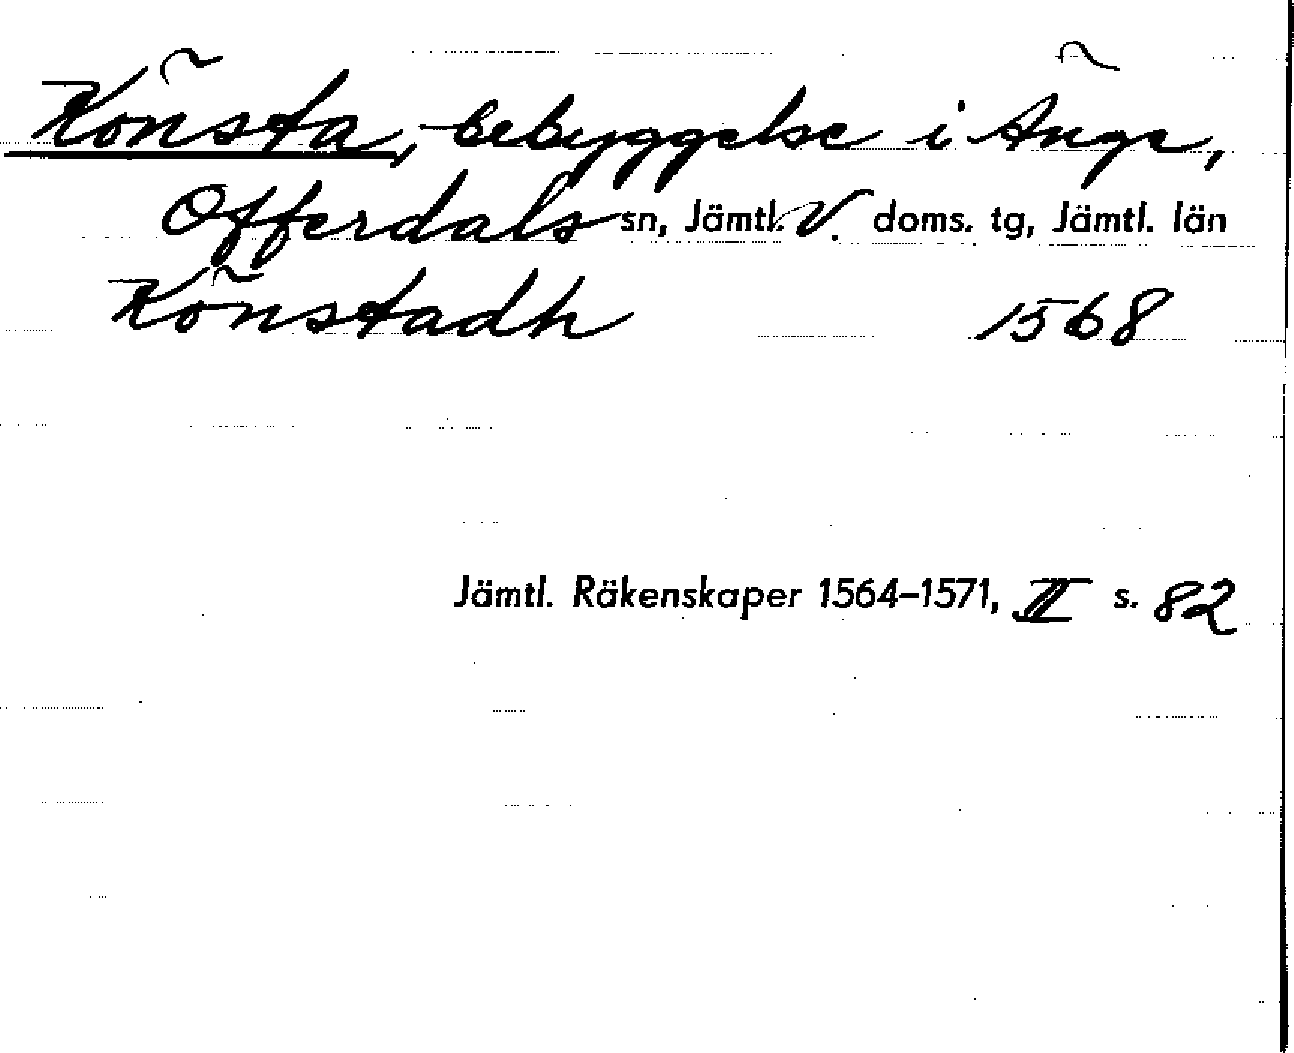 Könsta, bebyggelse i Änge,
Offerdals sn, Jämtl. V. doms. tg, Jämtl. län
Könstadh 1568
Jämtl. Räkenskaper 1564-1571, II s. 82